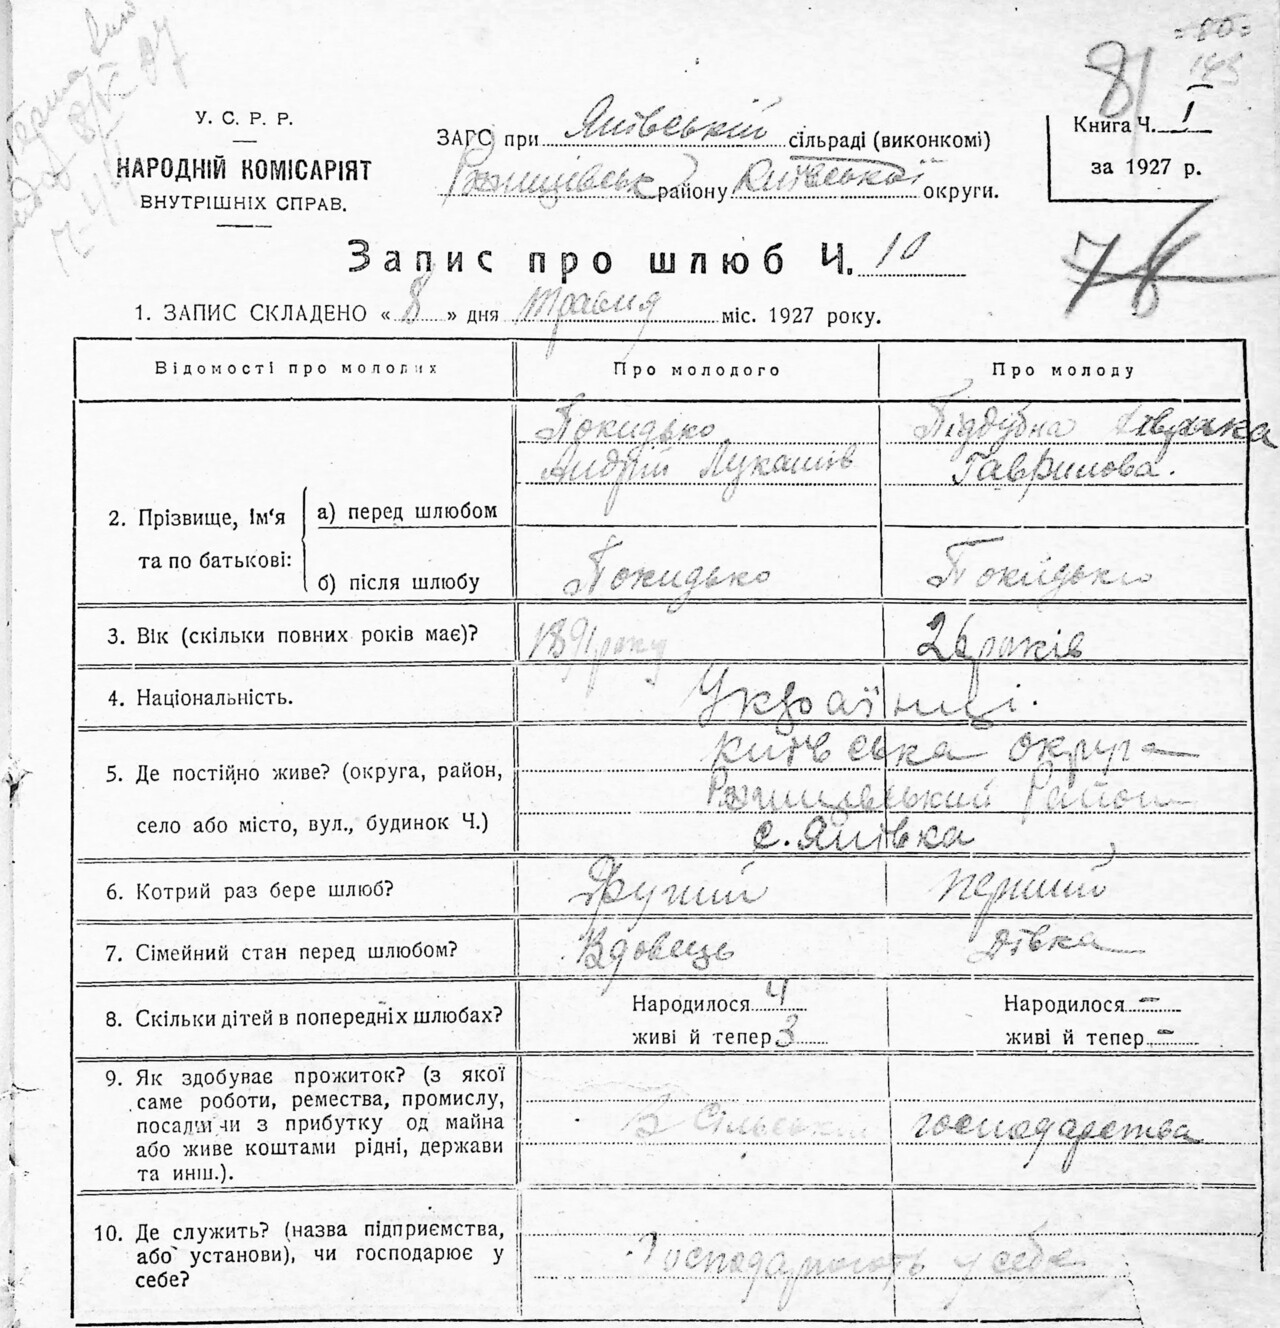 81
У. С. Р. Р.
НАРОДНІЙ КОМІСАРІЯТ
ВНУТРІШНІХ СПРАВ.
ЗАГС при Янівській сільраді (виконкомі)
району Київської округи.
Книга Ч. I
за 1927 р.
78
Запис про шлюб Ч. 10
1. ЗАПИС СКЛАДЕНО « 8 » дня травня міс. 1927 року.
Відомості про молодих
Про молодого
Про молоду
2. Прізвище, Ім'я
та по батькові:
а) перед шлюбом
Покидько
Андрій Лукашів
Піддубна
Гаврилова.
б) після шлюбу
Покидько
Покидько
3. Вік (скільки повних років має)?
1891 року
26 років
4. Національність.
Українці.
5. Де постійно живе? (округа, район,
село або місто, вул., будинок Ч.)
Київська округа
Район
с. Янівка
6. Котрий раз бере шлюб?
Другий
перший
7. Сімейний стан перед шлюбом?
Вдовець
дівка
8. Скільки дітей в попередніх шлюбах?
Народилося 4
живі й тепер 3
Народилося –
живі й тепер –
9. Як здобуває прожиток? (з якої
саме роботи, ремества, промислу,
посади чи з прибутку од майна
або живе коштами рідні, держави
та инш.).
В сільськім господарства
10. Де служить? (назва підприємства,
або установи), чи господарює у
себе?
Господарюють у себе